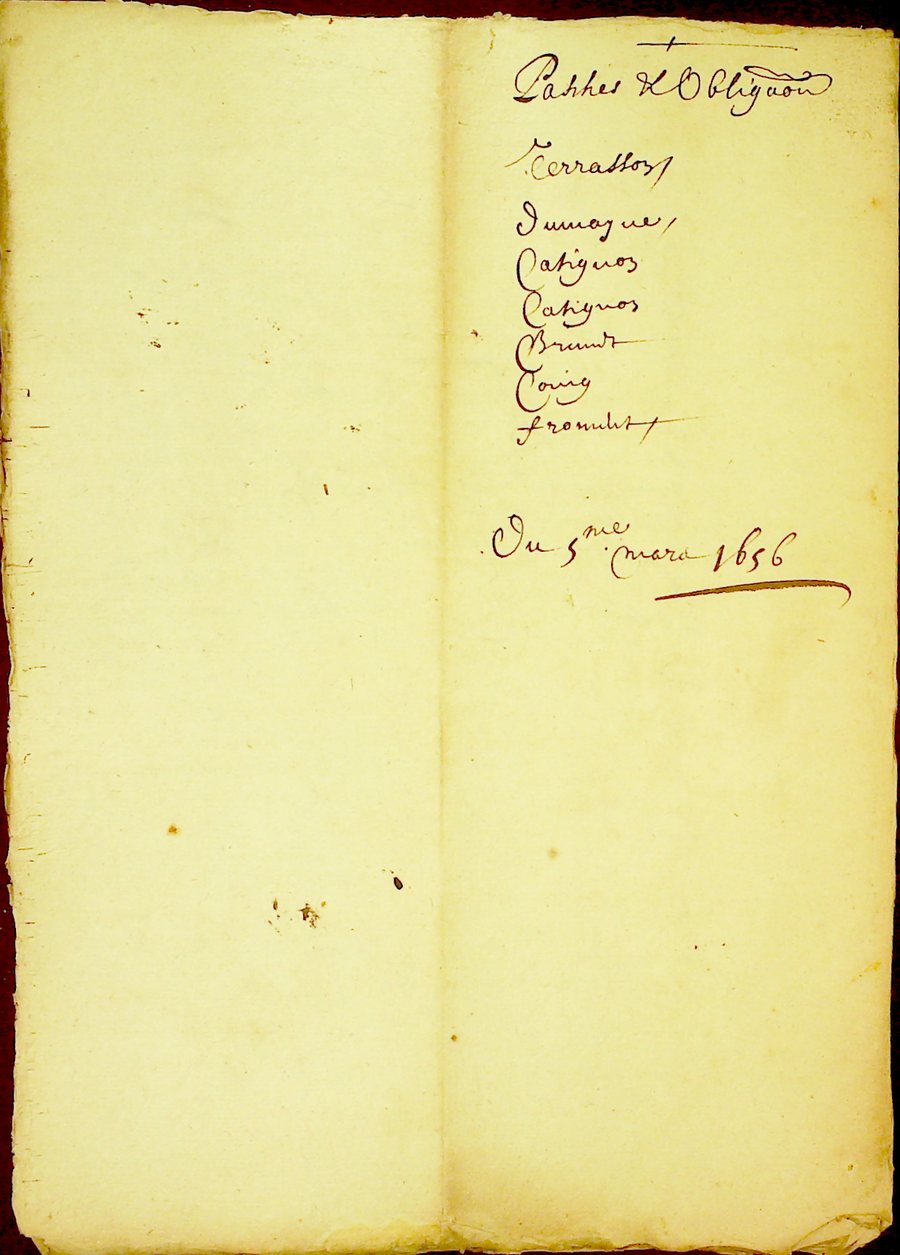 Pasches & Obligaõn
Terrasson
Dumayne
Catignon
Catignon
Brunet
Coing
froment
Du 5me mars 1656